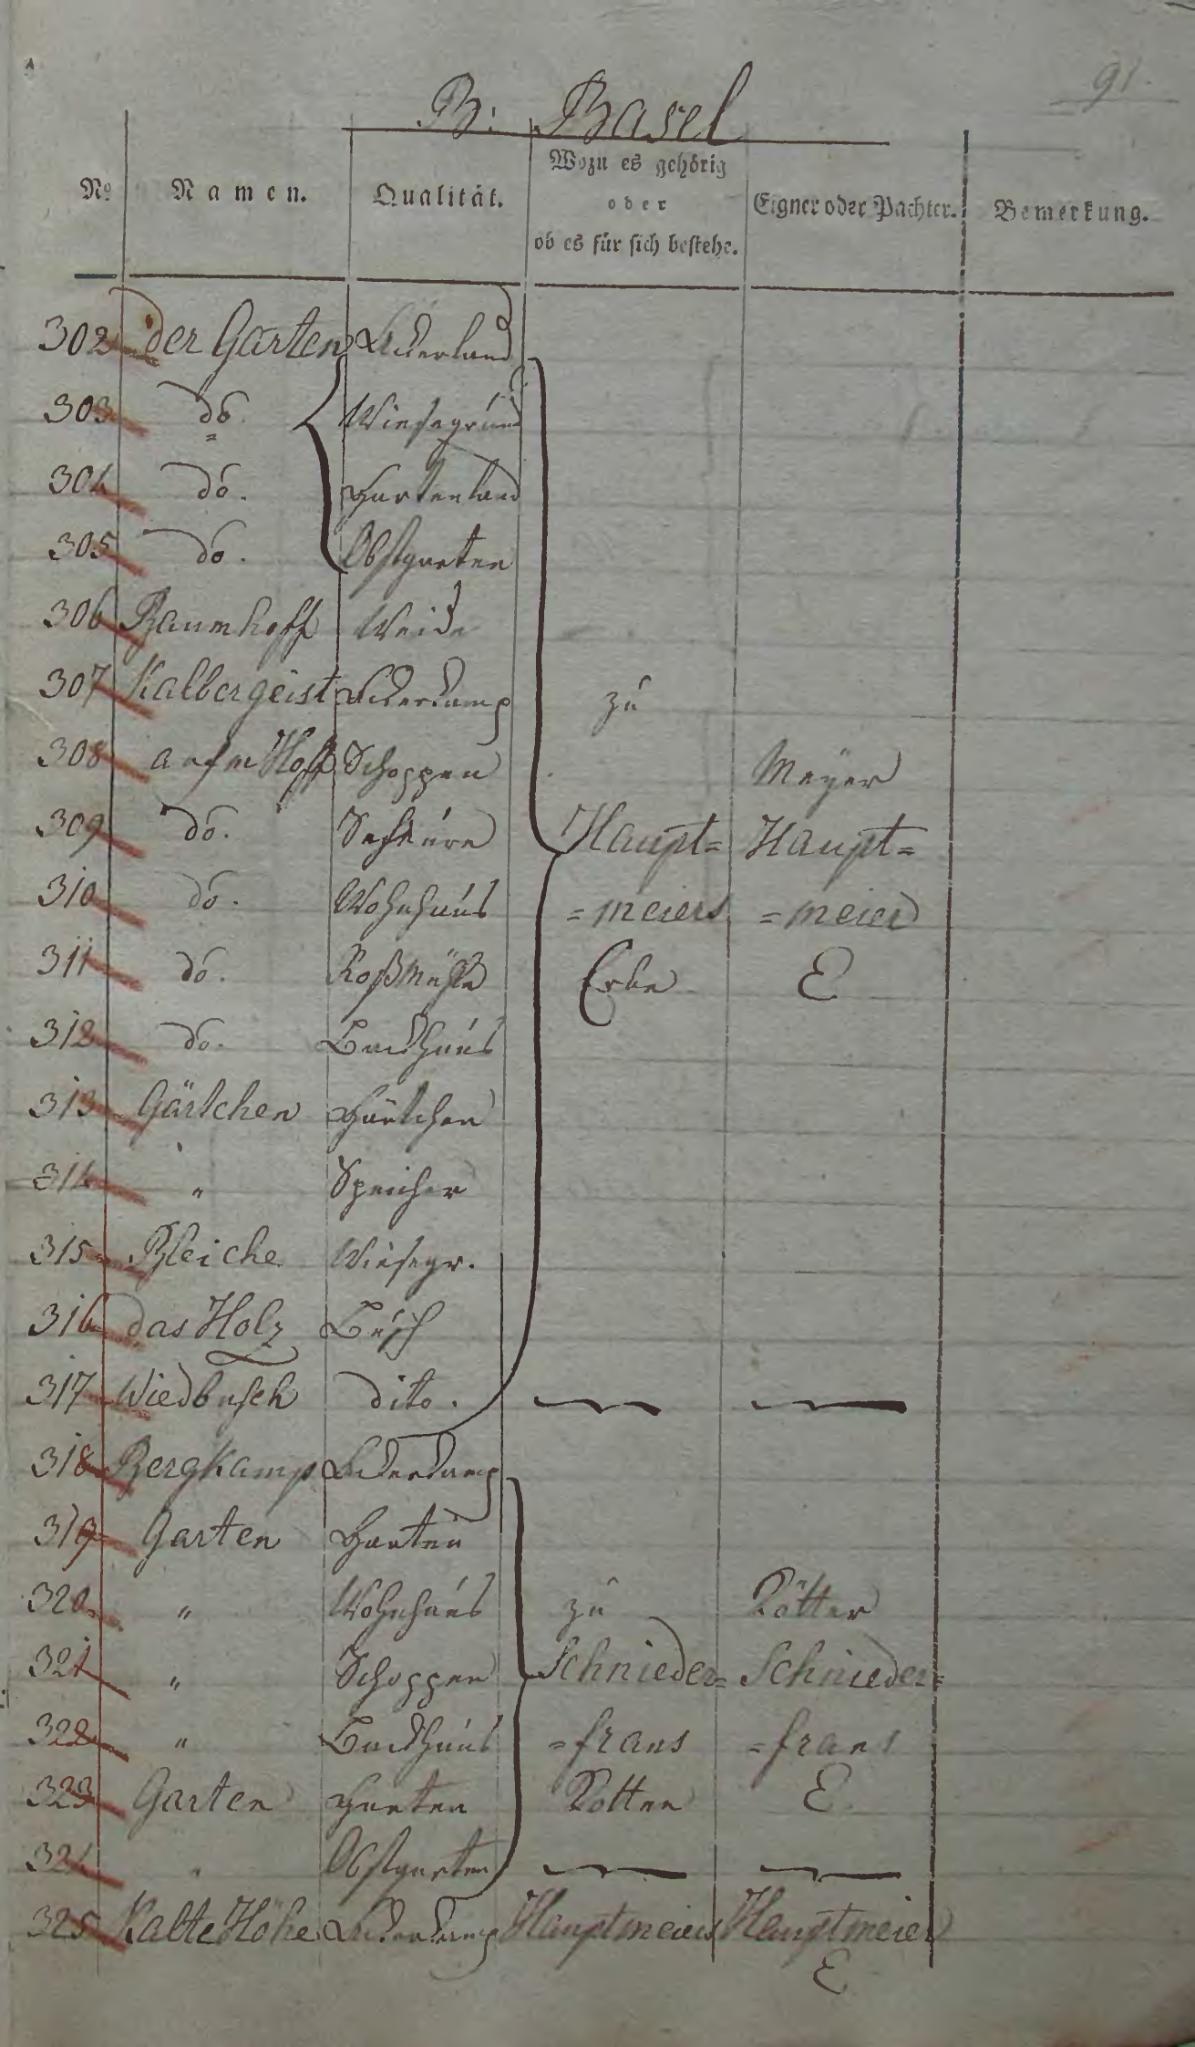 91.
B: Basel
No. Namen. Qualität. Wozu es gehörig oder ob es für sich bestehe. Eigner oder Pachter. Bemerkung.
302 der Garten Ackerland
303 do. Wiesegrund
304 do. Gartenland
305 do. Obstgarten
306 Baumhoff Weide
307 Kalbergeist Ackerkamp zu
308 aufm Hoff Schoppen Meyer
309 do. Scheure Haupt= Haupt=
310 do. Wohnhaus =meiers =meier
311 do. Roßmühle Erbe E
312 do. Backhaus
313 Gärtchen Gärtchen
314 " Speicher
315 Bleiche Wiesegr.
316 das Holz Busch
317 Wiedbusch dito.
318 Bergkamp Ackerkamp
319 Garten Garten
320 " Wohnhaus zu Kötter
321 " Schoppen Schnieder= Schnieder=
322 " Backhaus =frans =frans
323 Garten Garten Kotten E
324 " Obstgarten
325 Kalte Höhe Ackerkamp Hauptmeiers Hauptmeier
E